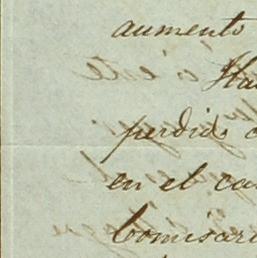 aumento
Ha
perdido
en el ca
Comisari